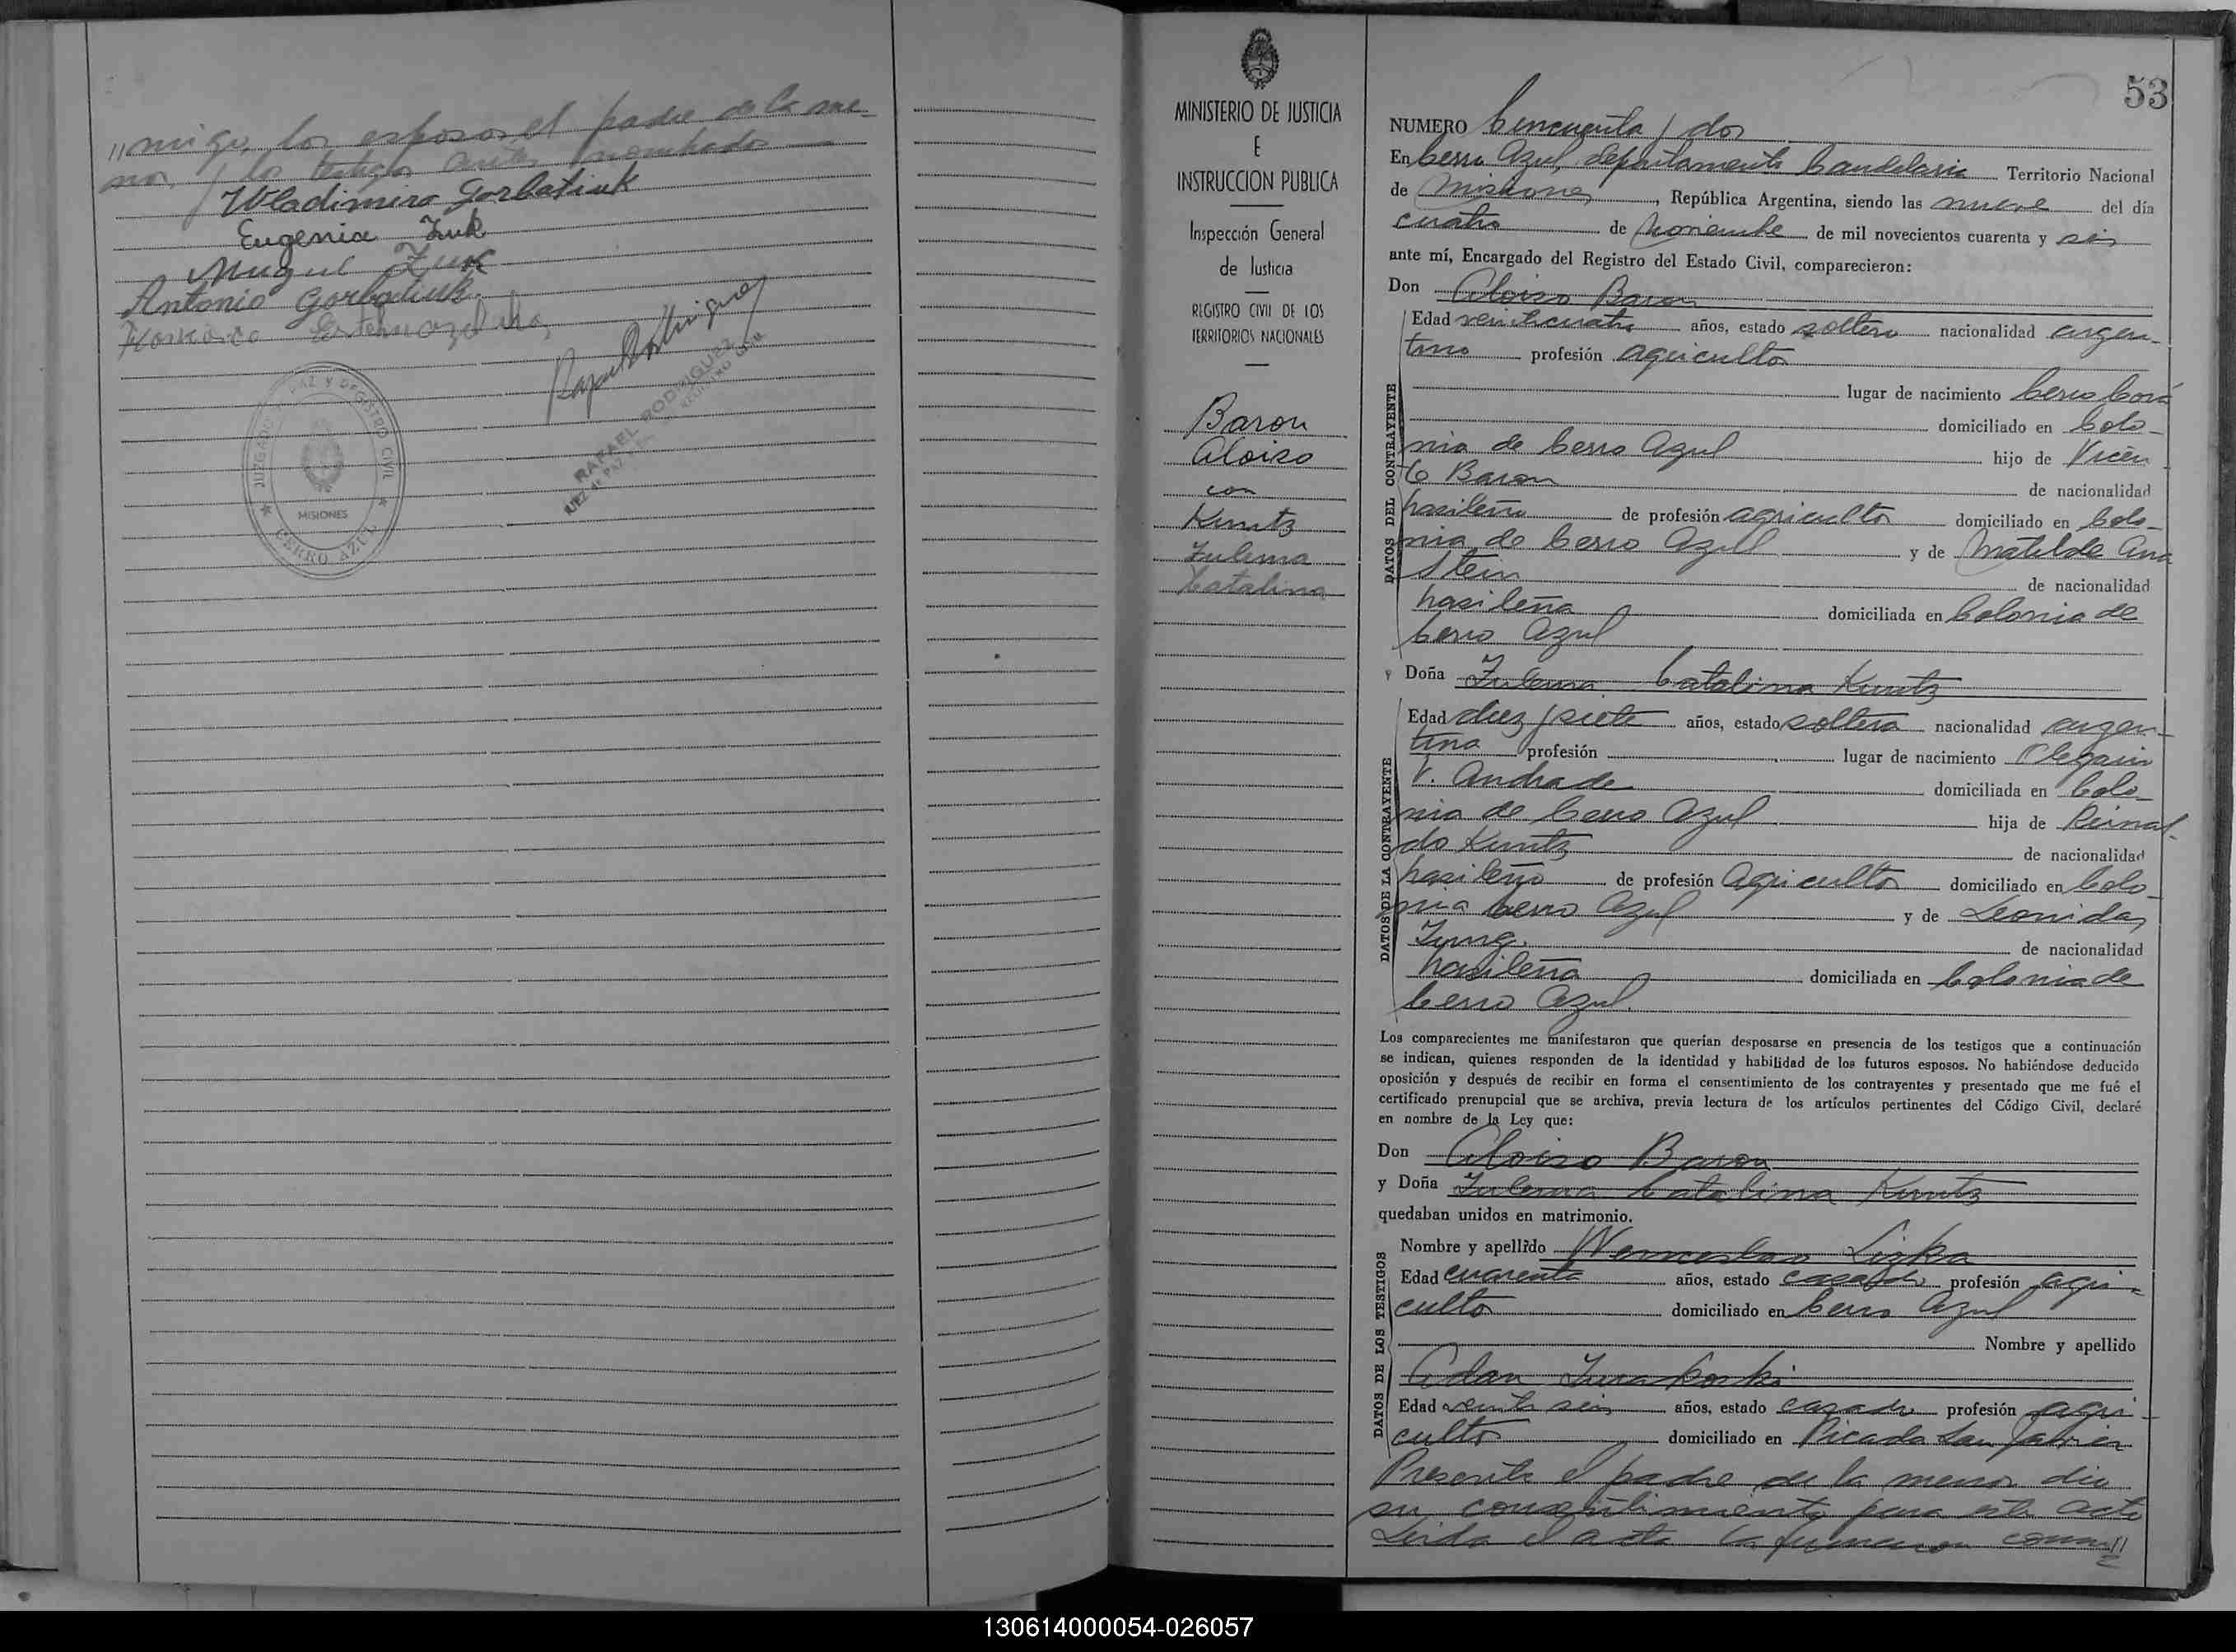 "migo, los esposos el padre de la me-
nor, y los testigos antes nombrados —
Wladimiro Gorbatiuk
Eugenia Zuk
Miguel Zuk
Antonio Gorbatiuk
JUZGADO DE PAZ Y REGISTRO CIVIL
MISIONES
CERRO AZUL
RAFAEL RODRIGUEZ
JUEZ de PAZ
53
MINISTERIO DE JUSTICIA
E
INSTRUCCION PUBLICA
Inspección General
de Justicia
REGISTRO CIVIL DE LOS
TERRITORIOS NACIONALES
Baron
Aloiso
con
Kuntz
Zulema
Catalina
NUMERO Cincuenta y dos
En Cerro Azul, departamento Candelaria Territorio Nacional
de Misiones, República Argentina, siendo las nueve del día
cuatro de Noviembre de mil novecientos cuarenta y seis
ante mí, Encargado del Registro del Estado Civil, comparecieron:
Don Aloiso Baron
DATOS DEL CONTRAYENTE
Edad veinticuatro años, estado soltero nacionalidad argen-
tino profesión agricultor
lugar de nacimiento Cerro Corá
domiciliado en Colo-
nia de Cerro Azul hijo de Vicen
te Baron de nacionalidad
brasileña de profesión agricultor domiciliado en Colo-
nia de Cerro Azul y de Matilde Ana
Stein de nacionalidad
brasileña domiciliada en Colonia de
Cerro Azul
y Doña Zulema Catalina Kuntz
DATOS DE LA CONTRAYENTE
Edad diez y siete años, estado soltera nacionalidad argen-
tina profesión lugar de nacimiento Olegario
V. Andrade domiciliada en Colo-
nia de Cerro Azul hija de Reinal-
do Kuntz de nacionalidad
brasileño de profesión Agricultor domiciliado en Colo-
nia Cerro Azul y de Leonidas
Jung. de nacionalidad
brasileña domiciliada en Colonia de
Cerro Azul.
Los comparecientes me manifestaron que querían desposarse en presencia de los testigos que a continuación
se indican, quienes responden de la identidad y habilidad de los futuros esposos. No habiéndose deducido
oposición y después de recibir en forma el consentimiento de los contrayentes y presentado que me fué el
certificado prenupcial que se archiva, previa lectura de los artículos pertinentes del Código Civil, declaré
en nombre de la Ley que:
Don Aloiso Baron
y Doña Zulema Catalina Kuntz
quedaban unidos en matrimonio.
DATOS DE LOS TESTIGOS
Nombre y apellido Wenceslao Lizka
Edad cuarenta años, estado casado profesión agri-
cultor domiciliado en Cerro Azul
Nombre y apellido
Adan
Edad veinte seis años, estado casado profesión agri-
cultor domiciliado en Picada San Javier
Presente el padre de la menor dio
su consentimiento para este acto
Leida el acta la firmaron conm"
130614000054-026057